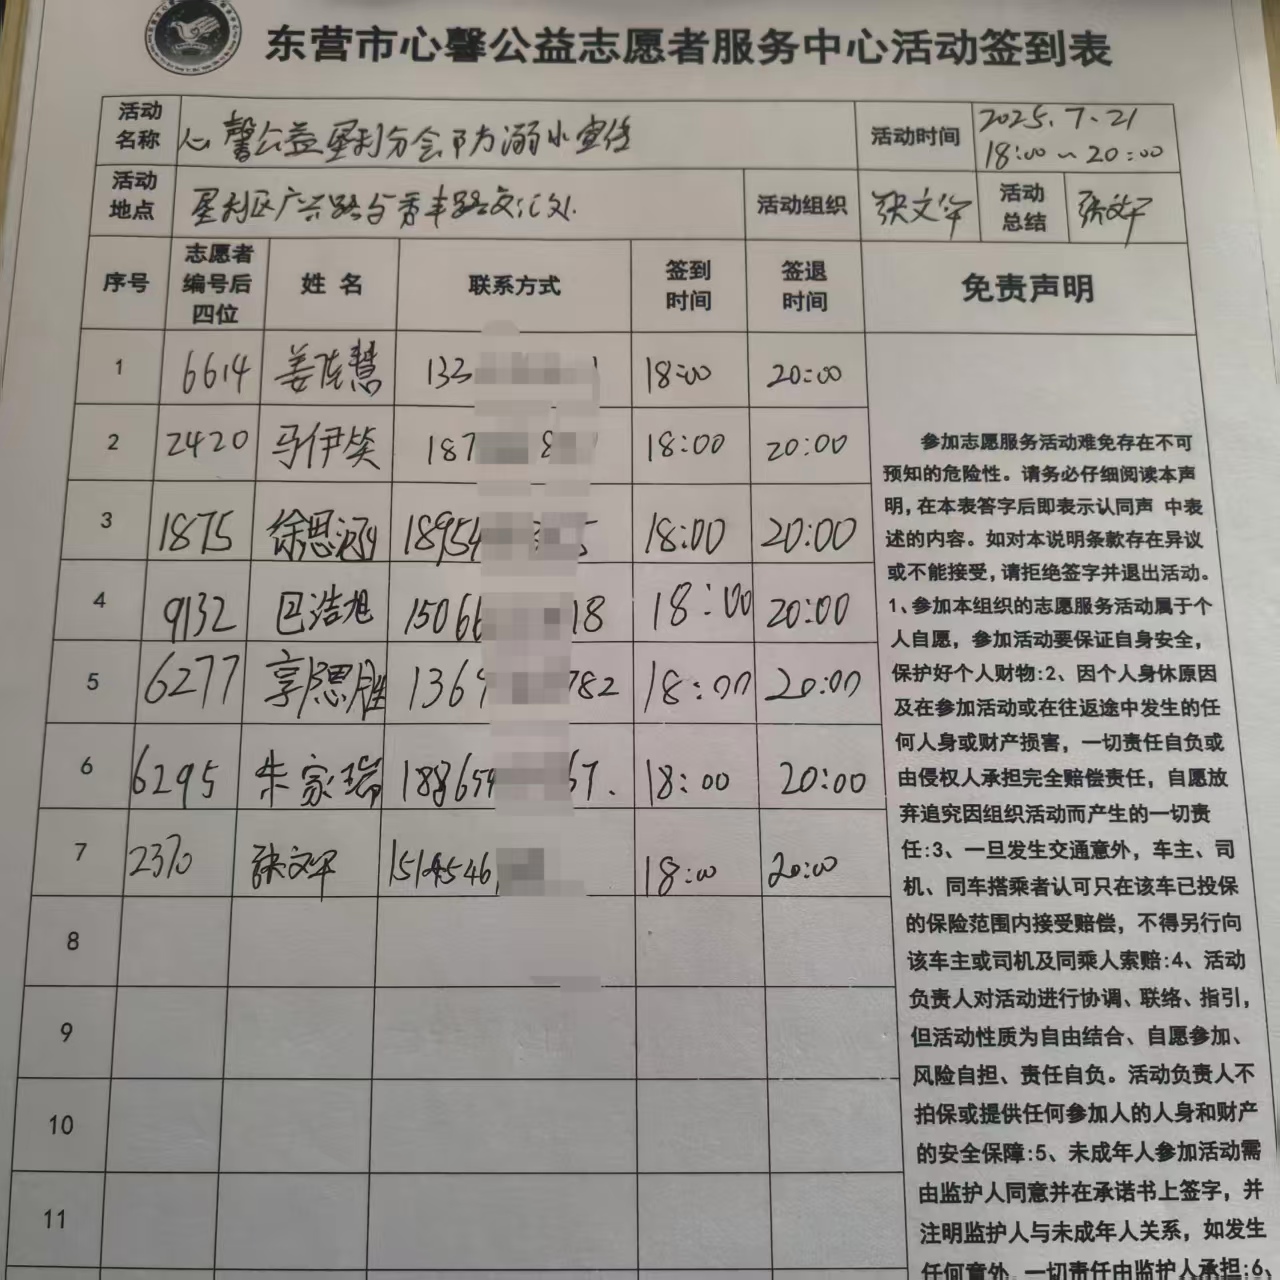 东营市心馨公益志愿者服务中心活动签到表
活动名称 心馨公益垦利分会防溺水宣传 活动时间 2025.7.21 18:00~20:00
活动地点 垦利区广兴路与秀丰路交汇处. 活动组织 张文军 活动总结 张文军
序号 志愿者编号后四位 姓名 联系方式 签到时间 签退时间 免责声明
1 6614 姜 慧 133 18:00 20:00
2 2420 马伊 187 8 18:00 20:00
3 1875 徐思涵 18954 5 18:00 20:00
4 9132 巴浩旭 15066 18 18:00 20:00
5 6277 思胜 1369 782 18:00 20:00
6 6295 朱家瑞 188654 67. 18:00 20:00
7 2370 张文军 1514546 18:00 20:00
8
9
10
11
参加志愿服务活动难免存在不可
预知的危险性。请务必仔细阅读本声
明,在本表答字后即表示认同声 中表
述的内容。如对本说明条款存在异议
或不能接受,请拒绝签字并退出活动。
1、参加本组织的志愿服务活动属于个
人自愿，参加活动要保证自身安全，
保护好个人财物:2、因个人身休原因
及在参加活动或在往返途中发生的任
何人身或财产损害，一切责任自负或
由侵权人承担完全赔偿责任，自愿放
弃追究因组织活动而产生的一切责
任:3、一旦发生交通意外，车主、司
机、同车搭乘者认可只在该车已投保
的保险范围内接受赔偿，不得另行向
该车主或司机及同乘人索赔:4、活动
负责人对活动进行协调、联络、指引，
但活动性质为自由结合、自愿参加、
风险自担、责任自负。活动负责人不
拍保或提供任何参加人的人身和财产
的安全保障:5、未成年人参加活动需
由监护人同意并在承诺书上签字，并
注明监护人与未成年人关系，如发生
任何意外，一切责任由监护人承担:6、